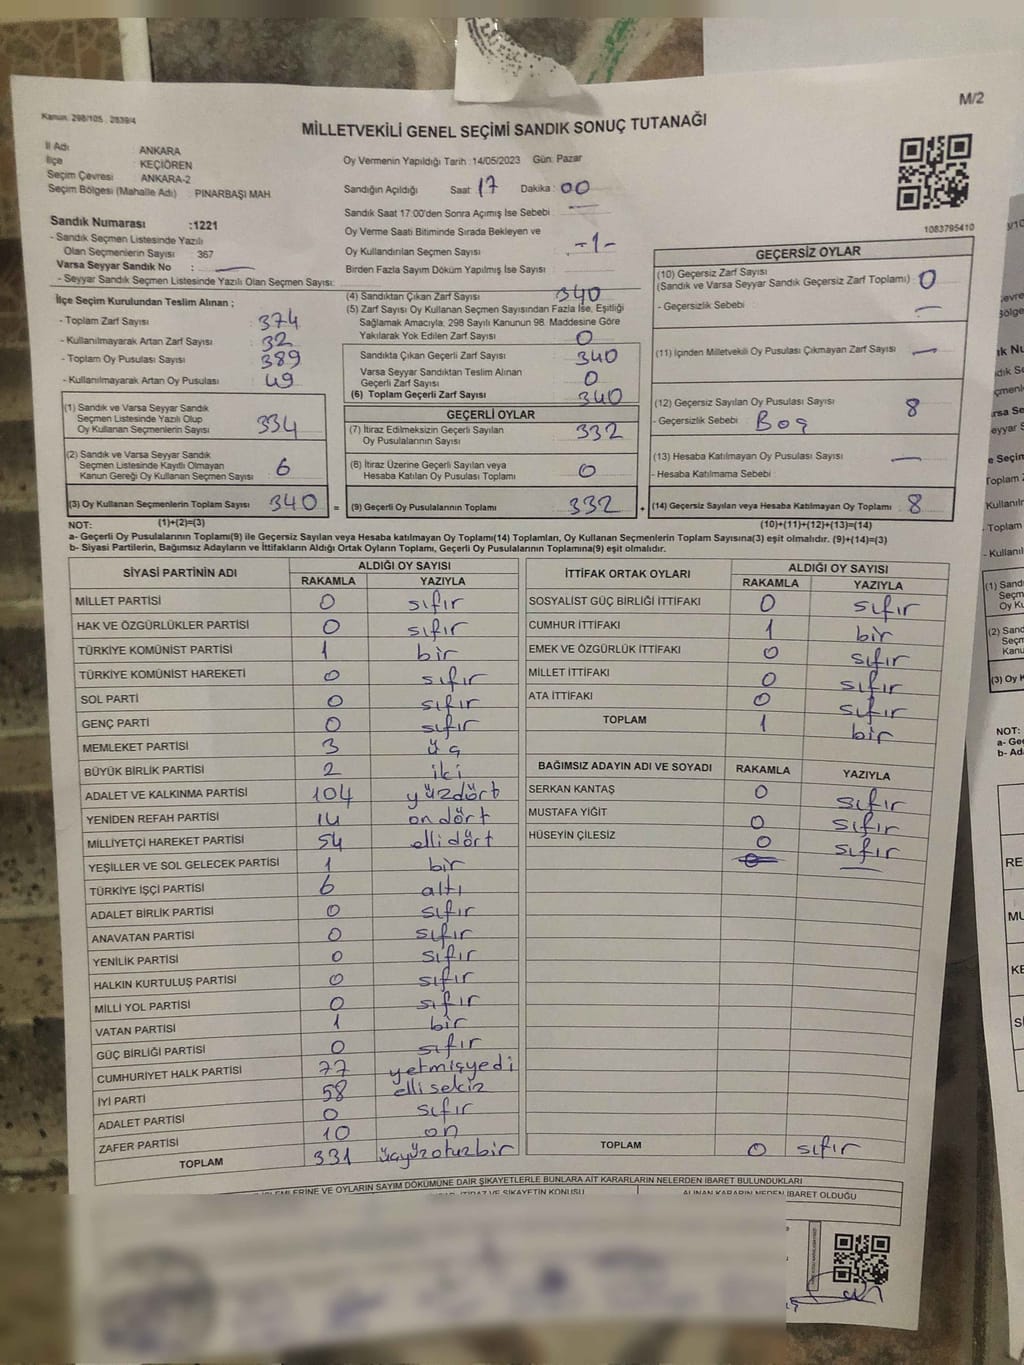 M/2
Kanun: 298/105 , 2839/4
MİLLETVEKİLİ GENEL SEÇİMİ SANDIK SONUÇ TUTANAĞI
İl Adı ANKARA
İlçe KEÇİÖREN
Seçim Çevresi ANKARA-2
Seçim Bölgesi (Mahalle Adı) : PINARBAŞI MAH
Sandık Numarası :1221
- Sandık Seçmen Listesinde Yazılı
Olan Seçmenlerin Sayısı 367
Varsa Seyyar Sandık No : —
- Seyyar Sandık Seçmen Listesinde Yazılı Olan Seçmen Sayısı:
Oy Vermenin Yapıldığı Tarih : 14/05/2023 Gün: Pazar
Sandığın Açıldığı Saat 17 Dakika : 00
Sandık Saat 17:00'den Sonra Açımış İse Sebebi : —
Oy Verme Saati Bitiminde Sırada Bekleyen ve
Oy Kullandırılan Seçmen Sayısı -1-
Birden Fazla Sayım Döküm Yapılmış İse Sayısı :
1083795410
İlçe Seçim Kurulundan Teslim Alınan ;
- Toplam Zarf Sayısı : 374
- Kullanılmayarak Artan Zarf Sayısı : 32
- Toplam Oy Pusulası Sayısı : 389
- Kullanılmayarak Artan Oy Pusulası : 49
(1) Sandık ve Varsa Seyyar Sandık
Seçmen Listesinde Yazılı Olup
Oy Kullanan Seçmenlerin Sayısı : 334
(2) Sandık ve Varsa Seyyar Sandık
Seçmen Listesinde Kayıtlı Olmayan
Kanun Gereği Oy Kullanan Seçmen Sayısı : 6
(3) Oy Kullanan Seçmenlerin Toplam Sayısı : 340
(1)+(2)=(3)
(4) Sandıktan Çıkan Zarf Sayısı 340
(5) Zarf Sayısı Oy Kullanan Seçmen Sayısından Fazla İse, Eşitliği
Sağlamak Amacıyla, 298 Sayılı Kanunun 98. Maddesine Göre
Yakılarak Yok Edilen Zarf Sayısı : 0
Sandıkta Çıkan Geçerli Zarf Sayısı : 340
Varsa Seyyar Sandıktan Teslim Alınan
Geçerli Zarf Sayısı : 0
(6) Toplam Geçerli Zarf Sayısı : 340
GEÇERLİ OYLAR
(7) İtiraz Edilmeksizin Geçerli Sayılan
Oy Pusulalarının Sayısı : 332
(8) İtiraz Üzerine Geçerli Sayılan veya
Hesaba Katılan Oy Pusulası Toplamı : 0
= (9) Geçerli Oy Pusulalarının Toplamı : 332 +
GEÇERSİZ OYLAR
(10) Geçersiz Zarf Sayısı
(Sandık ve Varsa Seyyar Sandık Geçersiz Zarf Toplamı) : 0
- Geçersizlik Sebebi : —
(11) İçinden Milletvekili Oy Pusulası Çıkmayan Zarf Sayısı : —
(12) Geçersiz Sayılan Oy Pusulası Sayısı : 8
- Geçersizlik Sebebi : Boş
(13) Hesaba Katılmayan Oy Pusulası Sayısı : —
- Hesaba Katılmama Sebebi :
(14) Geçersiz Sayılan veya Hesaba Katılmayan Oy Toplamı : 8
(10)+(11)+(12)+(13)=(14)
NOT:
a- Geçerli Oy Pusulalarının Toplamı(9) ile Geçersiz Sayılan veya Hesaba katılmayan Oy Toplamı(14) Toplamları, Oy Kullanan Seçmenlerin Toplam Sayısına(3) eşit olmalıdır. (9)+(14)=(3)
b- Siyasi Partilerin, Bağımsız Adayların ve İttifakların Aldığı Ortak Oyların Toplamı, Geçerli Oy Pusulalarının Toplamına(9) eşit olmalıdır.
SİYASİ PARTİNİN ADI ALDIĞI OY SAYISI
RAKAMLA YAZIYLA
MİLLET PARTİSİ 0 sıfır
HAK VE ÖZGÜRLÜKLER PARTİSİ 0 sıfır
TÜRKİYE KOMÜNİST PARTİSİ 1 bir
TÜRKİYE KOMÜNİST HAREKETİ 0 sıfır
SOL PARTİ 0 sıfır
GENÇ PARTİ 0 sıfır
MEMLEKET PARTİSİ 3 üç
BÜYÜK BİRLİK PARTİSİ 2 iki
ADALET VE KALKINMA PARTİSİ 104 yüzdört
YENİDEN REFAH PARTİSİ 14 ondört
MİLLİYETÇİ HAREKET PARTİSİ 54 ellidört
YEŞİLLER VE SOL GELECEK PARTİSİ 1 bir
TÜRKİYE İŞÇİ PARTİSİ 6 altı
ADALET BİRLİK PARTİSİ 0 sıfır
ANAVATAN PARTİSİ 0 sıfır
YENİLİK PARTİSİ 0 sıfır
HALKIN KURTULUŞ PARTİSİ 0 sıfır
MİLLİ YOL PARTİSİ 0 sıfır
VATAN PARTİSİ 1 bir
GÜÇ BİRLİĞİ PARTİSİ 0 sıfır
CUMHURİYET HALK PARTİSİ 77 yetmişyedi
İYİ PARTİ 58 ellisekiz
ADALET PARTİSİ 0 sıfır
ZAFER PARTİSİ 10 on
TOPLAM 331 üçyüzotuzbir
İTTİFAK ORTAK OYLARI ALDIĞI OY SAYISI
RAKAMLA YAZIYLA
SOSYALİST GÜÇ BİRLİĞİ İTTİFAKI 0 sıfır
CUMHUR İTTİFAKI 1 bir
EMEK VE ÖZGÜRLÜK İTTİFAKI 0 sıfır
MİLLET İTTİFAKI 0 sıfır
ATA İTTİFAKI 0 sıfır
TOPLAM 1 bir
BAĞIMSIZ ADAYIN ADI VE SOYADI RAKAMLA YAZIYLA
SERKAN KANTAŞ 0 sıfır
MUSTAFA YİĞİT 0 sıfır
HÜSEYİN ÇİLESİZ 0 sıfır
TOPLAM 0 sıfır
İŞLEMLERİNE VE OYLARIN SAYIM DÖKÜMÜNE DAİR ŞİKAYETLERLE BUNLARA AİT KARARLARIN NELERDEN İBARET BULUNDUKLARI
İTİRAZ VE ŞİKAYETİN KONUSU ALINAN KARARIN NEDEN İBARET OLDUĞU